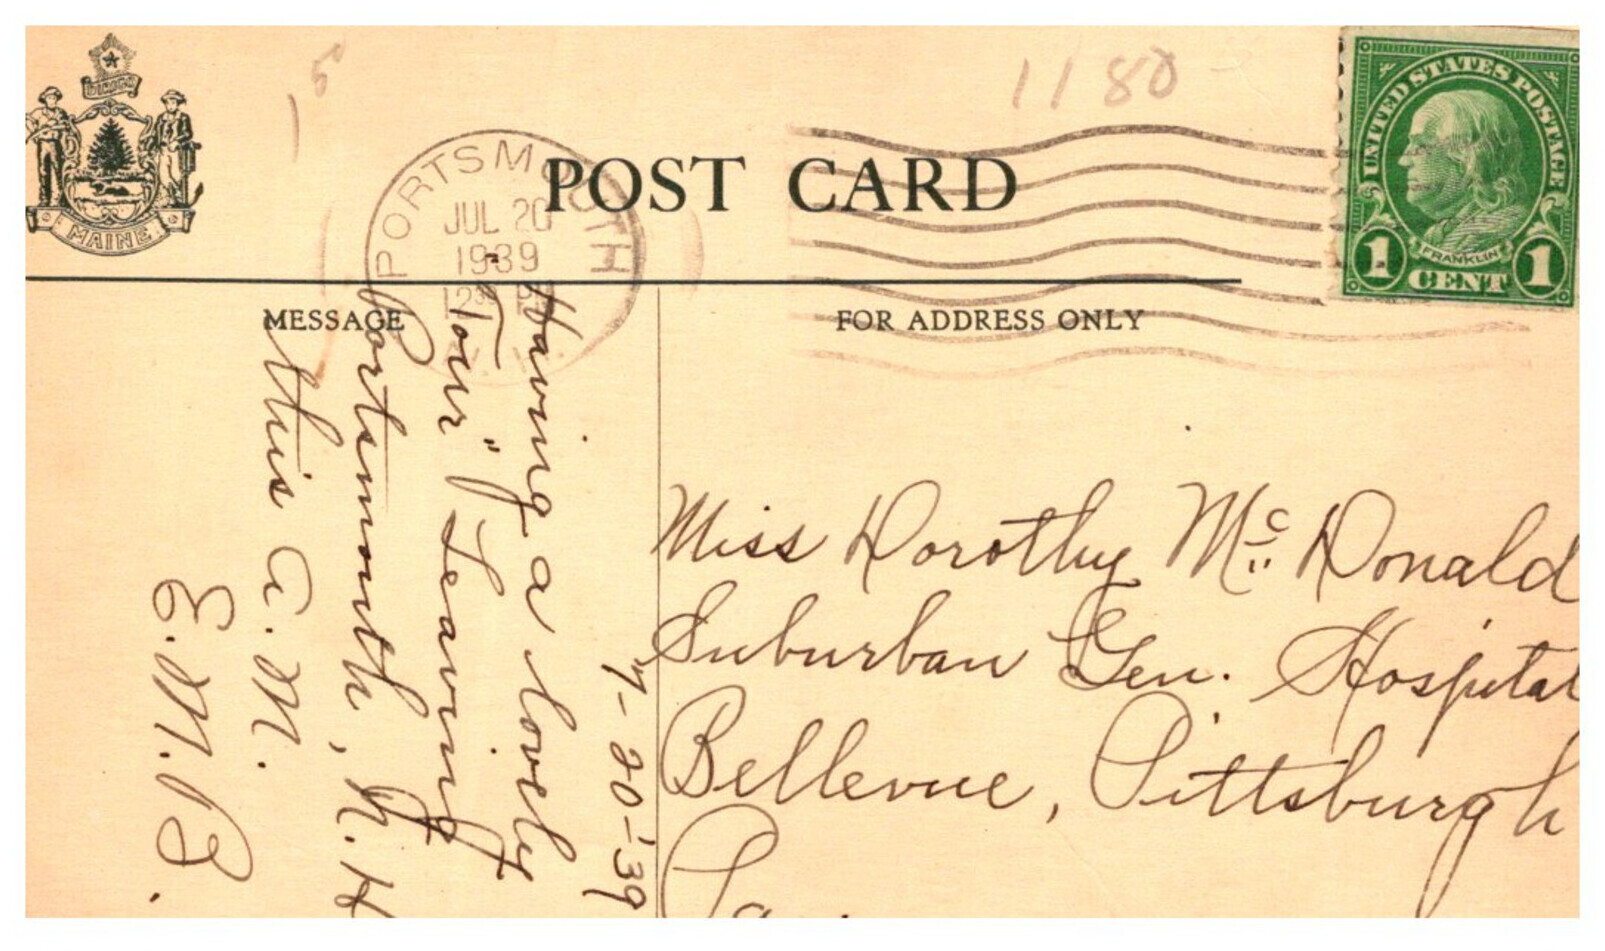 DIRIGO
MAINE
15
1180
PORTSMOUTH
JUL 20
1939
12 30 PM
N.H.
POST CARD
UNITED STATES POSTAGE
FRANKLIN
1 CENT 1
MESSAGE
FOR ADDRESS ONLY
7-20-'39
Having a lovely
"Tour" Leaving
Portsmouth, N.H
this a.M.
E.M.B.
Miss Dorothy Mc Donald
Suburban Gen. Hospital
Bellevue, Pittsburgh
Pa